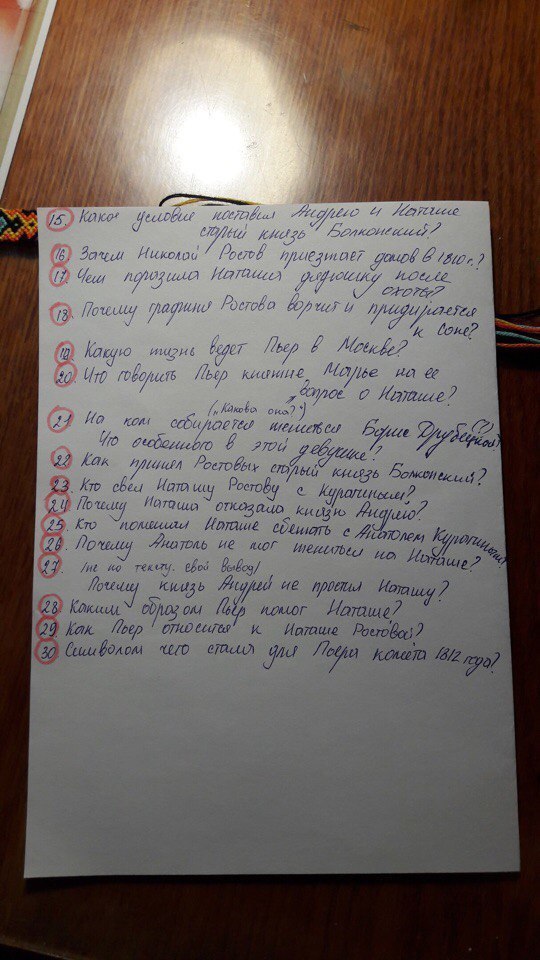 15. Какое условие поставил Андрею и Наташе
старый князь Болконский?
16. Зачем Николай Ростов приезжает домой в 1810 г.?
17. Чем поразила Наташа дядюшку после
охоты?
18. Почему графиня Ростова ворчит и придирается
к Соне?
19. Какую жизнь ведет Пьер в Москве?
20. Что говорить Пьер княжне Марье на ее
вопрос о Наташе?
(„Какова она?")
21. На ком собирается жениться Борис Друбецкой?
Что особенного в этой девушке?
22. Как принял Ростовых старый князь Болконский?
23. Кто свел Наташу Ростову с Курагиным?
24. Почему Наташа отказала князю Андрею?
25. Кто помешал Наташе сбежать с Анатолем Курагиным?
26. Почему Анатоль не мог жениться на Наташе?
27. /не по тексту. свой вывод/
Почему князь Андрей не простил Наташу?
28. Каким образом Пьер помог Наташе?
29. Как Пьер относится к Наташе Ростовой?
30. Символом чего стала для Пьера комета 1812 года?